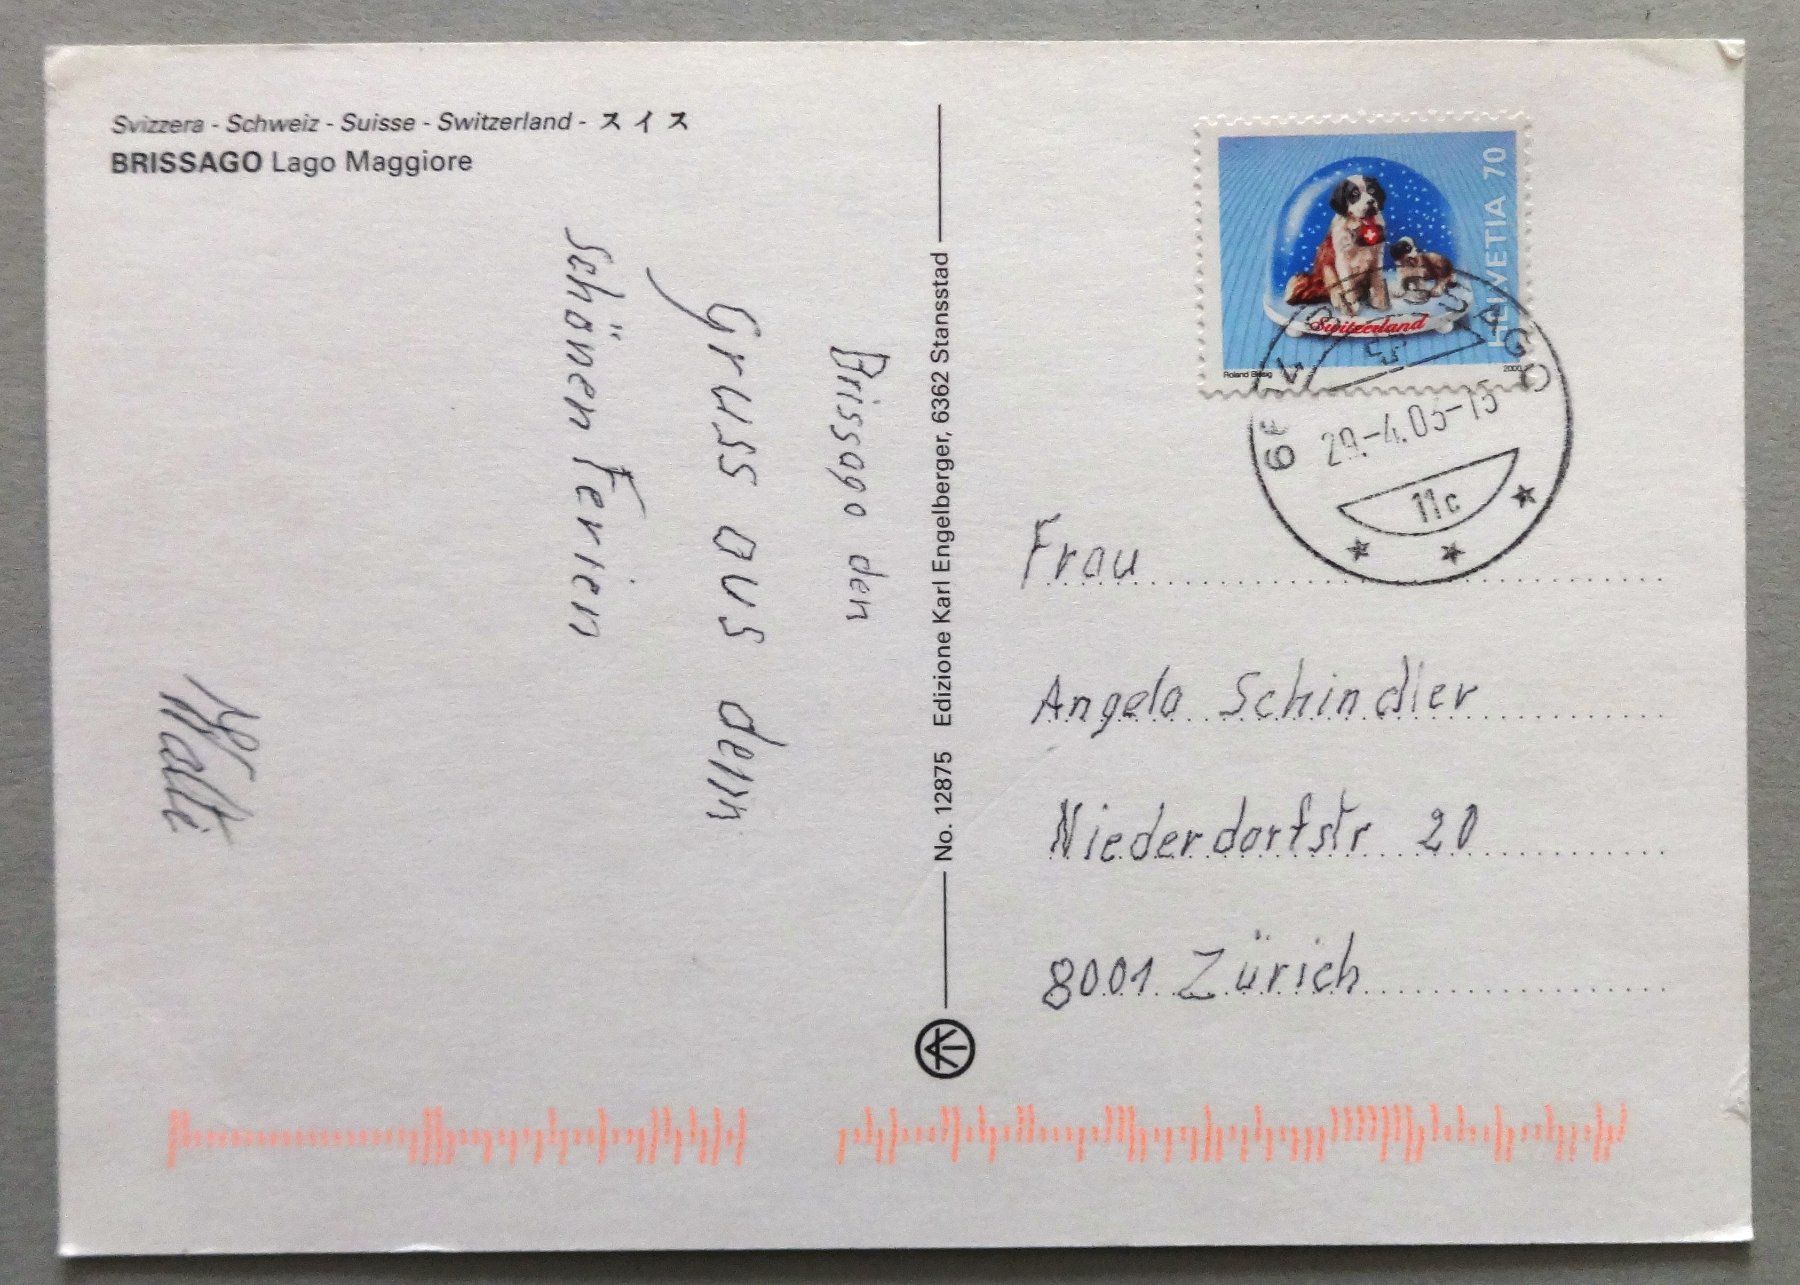 Svizzera - Schweiz - Suisse - Switzerland - スイス
BRISSAGO Lago Maggiore
Brissago den
Gruss aus dem
schönen Ferien
Walti
No. 12875 Edizione Karl Engelberger, 6362 Stansstad
HELVETIA 70
Switzerland
2000
BRISSAGO
11c
Frau
Angela Schindler
Niederdorfstr 20
8001 Zürich